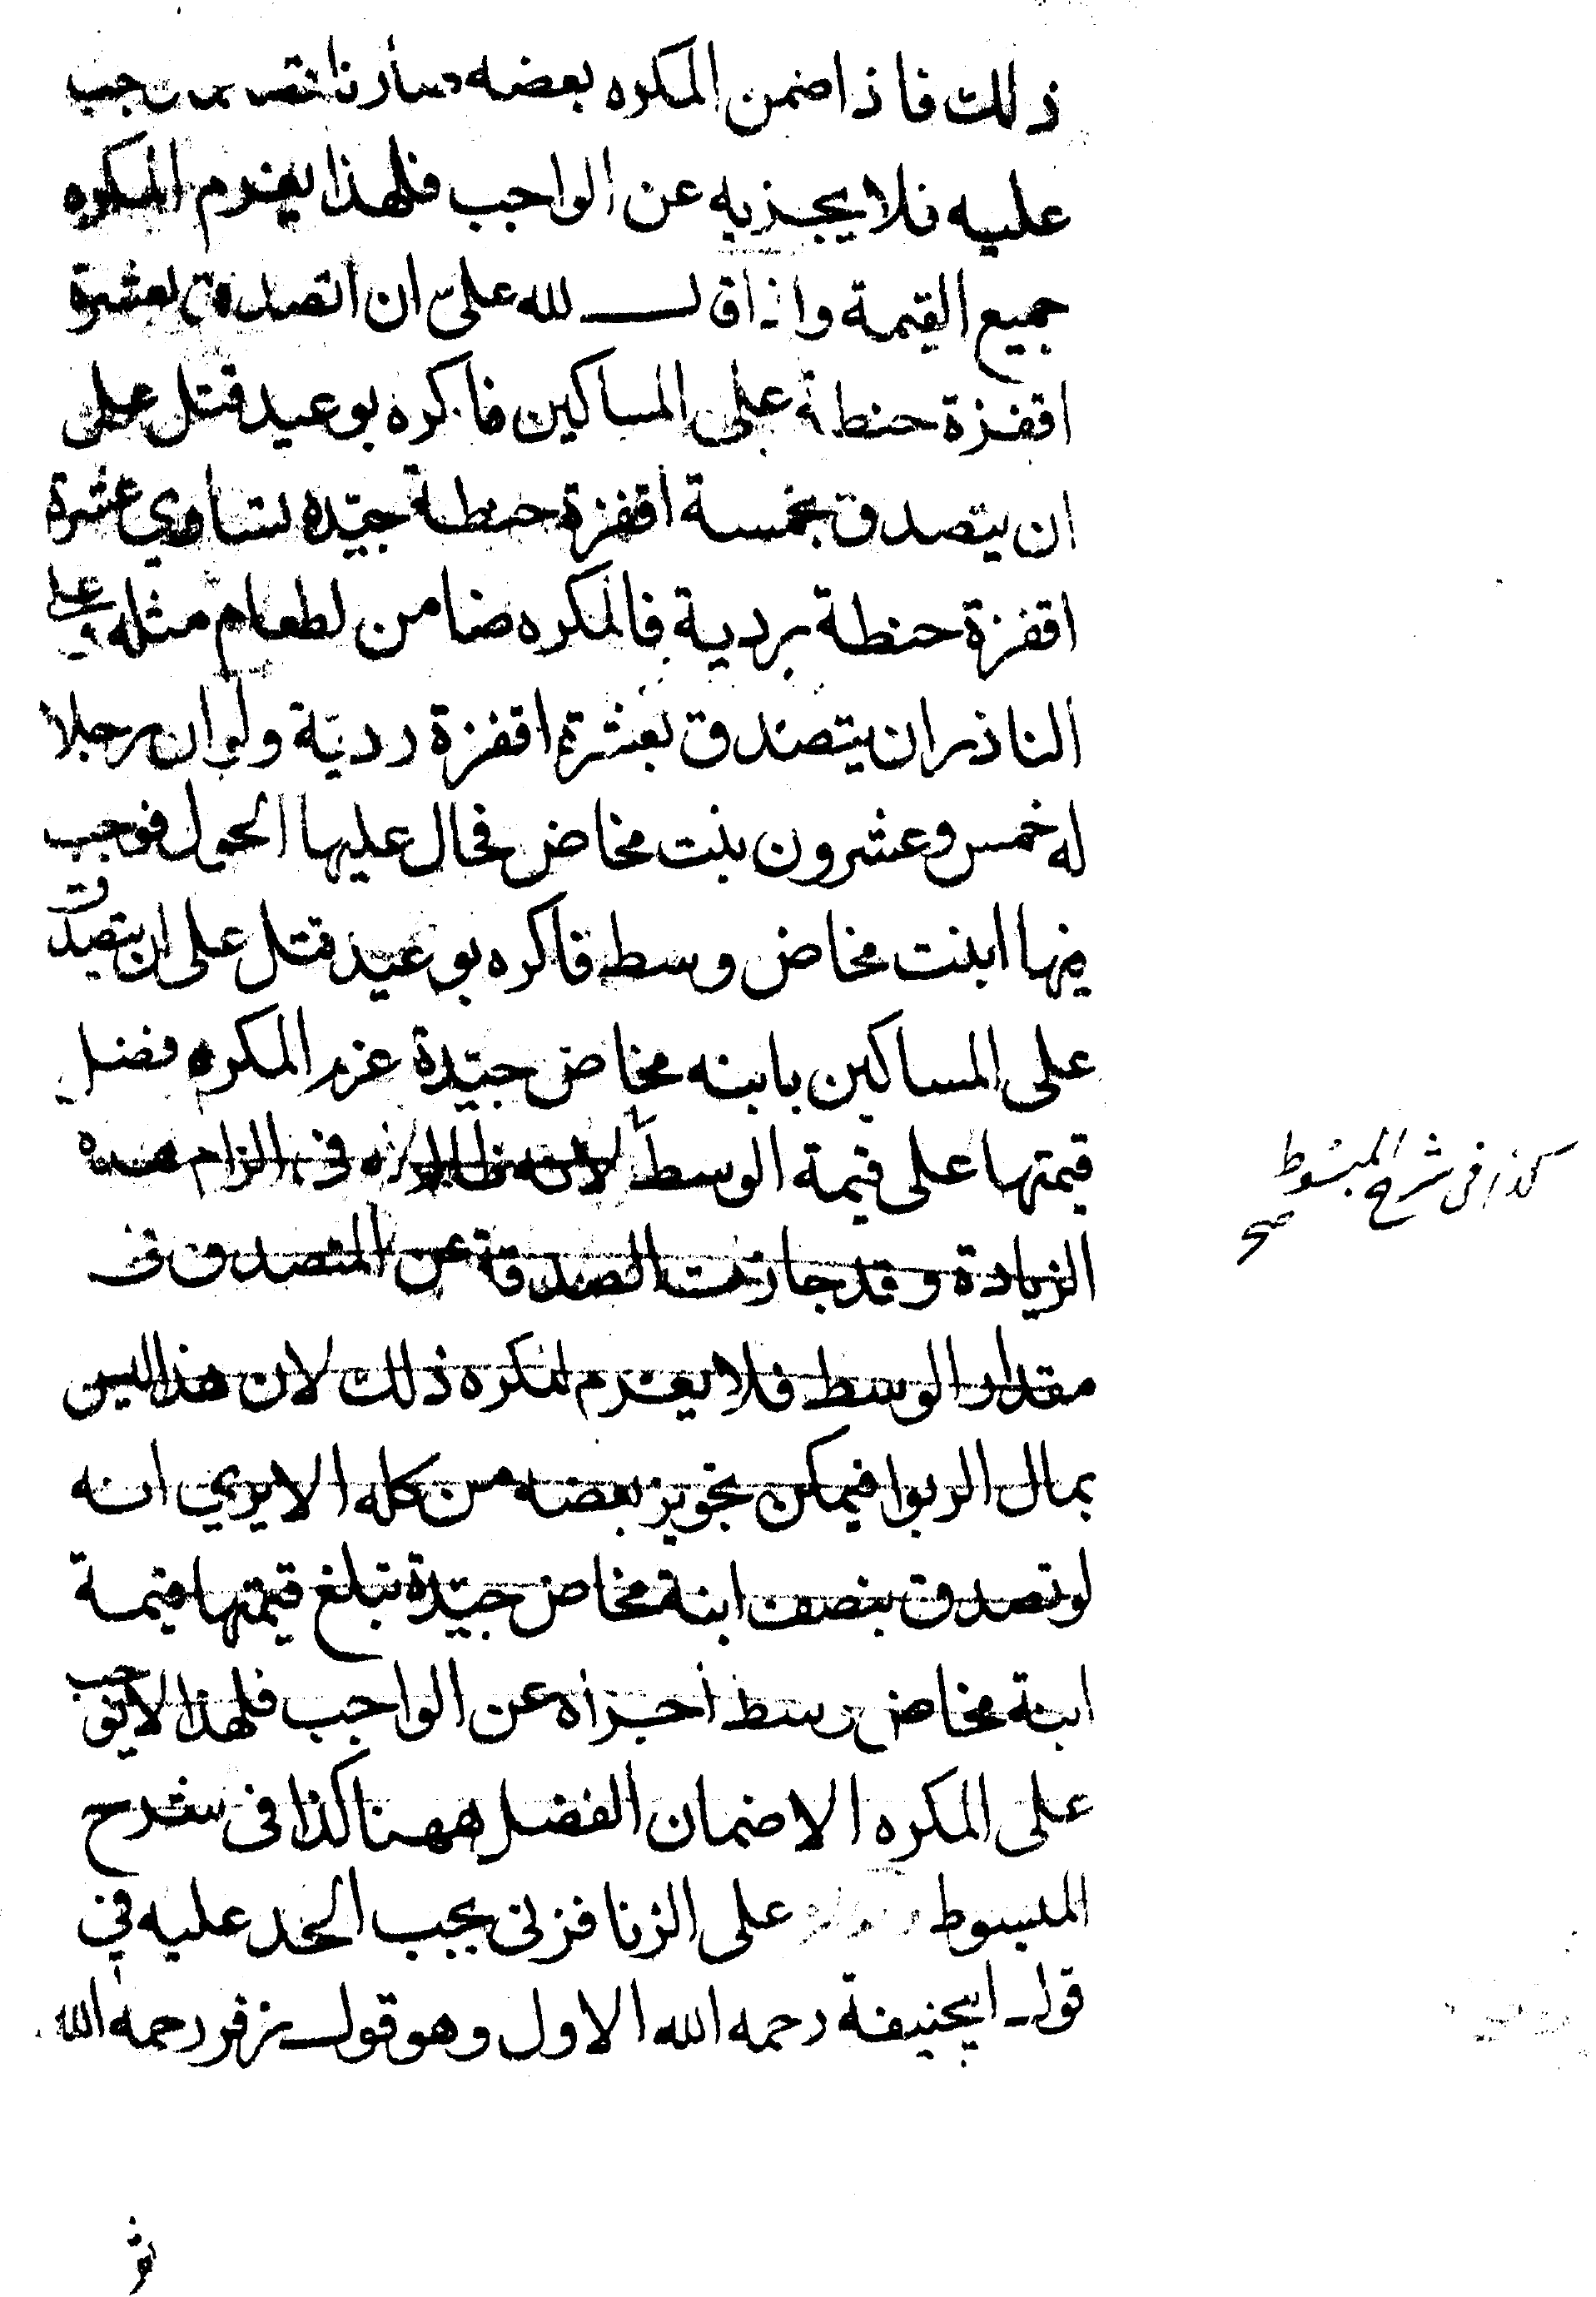 ذلك فاذا ضمن المكره بعضه صار ناقصا مما وجب
عليه فلا يجزيه عن الواجب فلهذا يغرم المكره
جميع القيمة واذا قال لله على ان اتصدق بعشرة
اقفزة حنطة على المساكين فاكره بوعيد قتل على
ان يتصدق بخمسة اقفزة حنطة جيّدة تساوي عشرة
اقفزة حنطة ردية فالمكره ضامن لطعام مثله وعلى
الناذر ان يتصدق بعشرة اقفزة رديّة ولو ان رجلا
له خمس وعشرون بنت مخاض فحال عليها الحول فوجب
فيها ابنت مخاض وسط فاكره بوعيد قتل على ان يتصدق
على المساكين بابنه مخاض جيّدة غرم المكره فضل
قيمتها على قيمة الوسط لانه ظالم له فى الزام هذه
الزيادة وقد جازت الصدقة عن المتصدق فى
مقدار الوسط فلا يغرم المكره ذلك لان هذا ليس
بمال الربوا فيمكن تجويز بعضه من كله الا يرى انه
لو تصدق بنصف ابنة مخاض جيّدة تبلغ قيمتها قيمة
ابنة مخاض وسط اجزاه عن الواجب فلهذا لا يوجب
على المكره الا ضمان الفضل ههنا كذا فى شرح
المبسوط على الزنا فزنى يجب الحد عليه في
قول ابيحنيفة رحمه الله الاول وهو قول زفر رحمه الله
كذا فى شرح المبسوط
صح